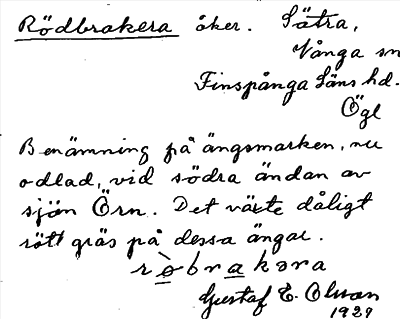 Rödbrakera åker. Sätra,
Vånga sn
Finspånga läns hd.
Ögl
Benämning på ängsmarken, nu
odlad, vid södra ändan av
sjön Örn. Det växte dåligt
rött gräs på dessa ängar.
rö̀brakəra
Gustaf E. Olson
1929